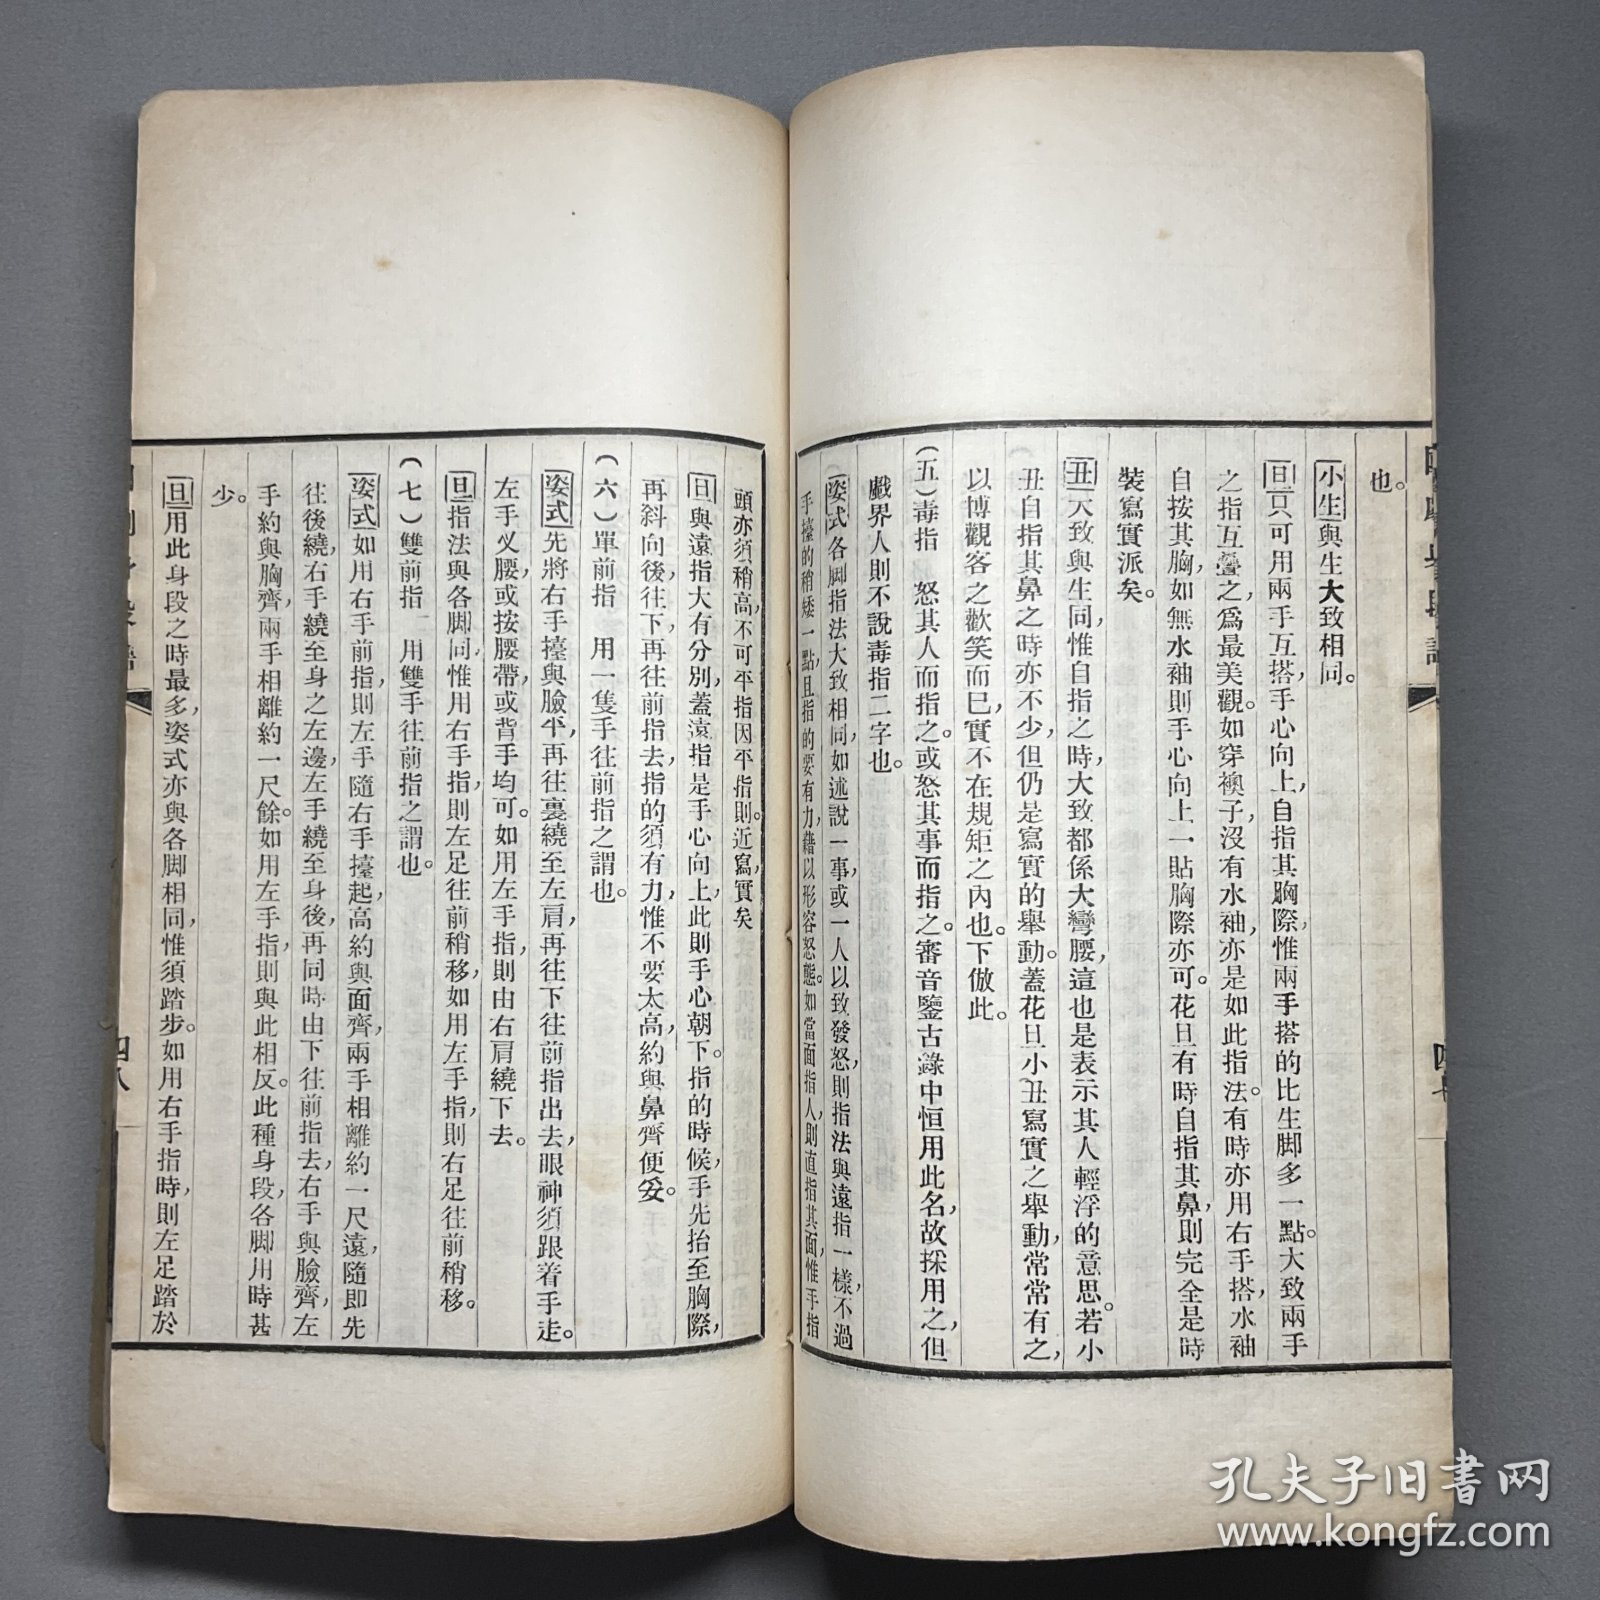 也。
小生與生大致相同。
旦只可用兩手互搭手心向上，自指其胸際，惟兩手搭的比生脚多一點。大致兩手
之指互疊之，爲最美觀。如穿襖子，沒有水袖，亦是如此指法。有時亦用右手搭水袖
自按其胸，如無水袖則手心向上一貼胸際亦可。花旦有時自指其鼻，則完全是時
裝寫實派矣。
丑大致與生同，惟自指之時，大致都係大彎腰，這也是表示其人輕浮的意思。若小
丑自指其鼻之時亦不少，但仍是寫實的舉動。蓋花旦小丑寫實之舉動，常常有之，
以博觀客之歡笑而已，實不在規矩之內也。下倣此。
（五）毒指　怒其人而指之。或怒其事而指之。審音鑒古錄中恒用此名，故採用之，但
戲界人則不說毒指二字也。
姿式各脚指法大致相同，如述說一事或一人以致發怒，則指法與遠指一樣，不過
手擡的稍矮一點，且指的要有力，藉以形容怒態。如當面指人，則直指其面，惟手指
頭亦須稍高，不可平指，因平指則近寫實矣。
旦與遠指大有分別，蓋遠指是手心向上，此則手心朝下。指的時候，手先抬至胸際，
再斜向後，往下，再往前指去，指的須有力，惟不要太高，約與鼻齊便妥。
（六）單前指　用一隻手往前指之謂也。
姿式先將右手擡與臉平，再往裏繞至左肩，再往下往前指出去，眼神須跟着手走。
左手乂腰，或按腰帶，或背手均可。如用左手指，則由右肩繞下去。
旦指法與各脚同，惟用右手指，則左足往前稍移，如用左手指，則右足往前稍移。
（七）雙前指　用雙手往前指之謂也。
姿式如用右手前指，則左手隨右手擡起，高約與面齊，兩手相離約一尺遠，隨即先
往後繞，右手繞至身之左邊，左手繞至身後，再同時由下往前指去，右手與臉齊，左
手約與胸齊，兩手相離約一尺餘。如用左手指，則與此相反。此種身段，各脚用時甚
少。
旦用此身段之時最多，姿式亦與各脚相同，惟須踏步。如用右手指時，則左足踏於
四八
孔夫子旧書网
www.kongfz.com